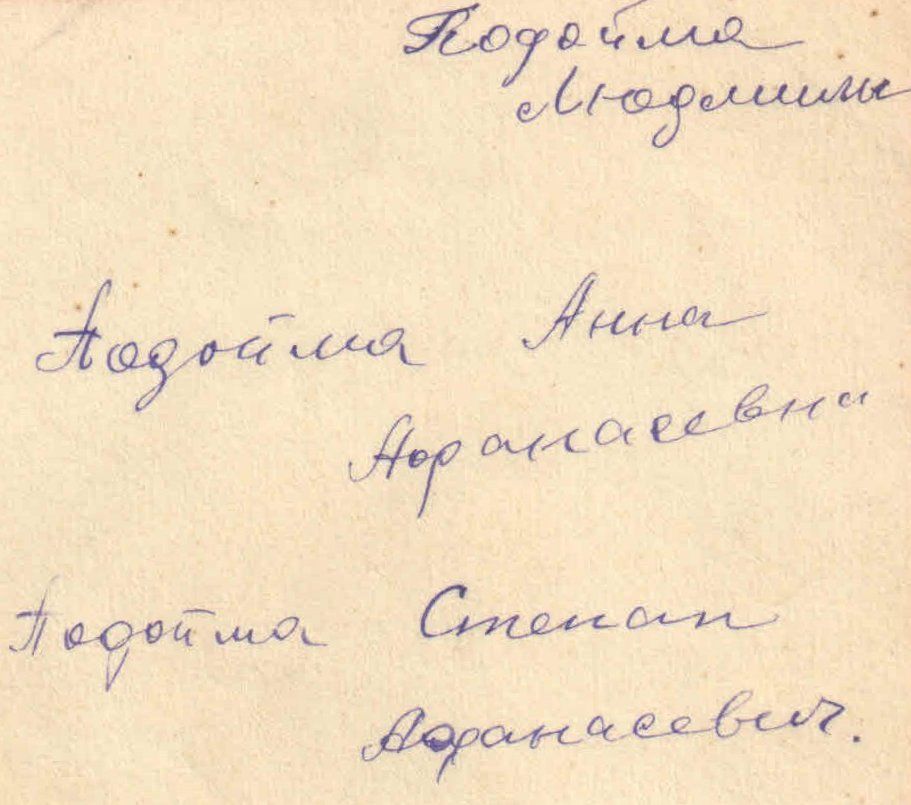 Подойма
Людмилы
Подойма Анна
Афанасевна
Подойма Степан
Афанасевич.